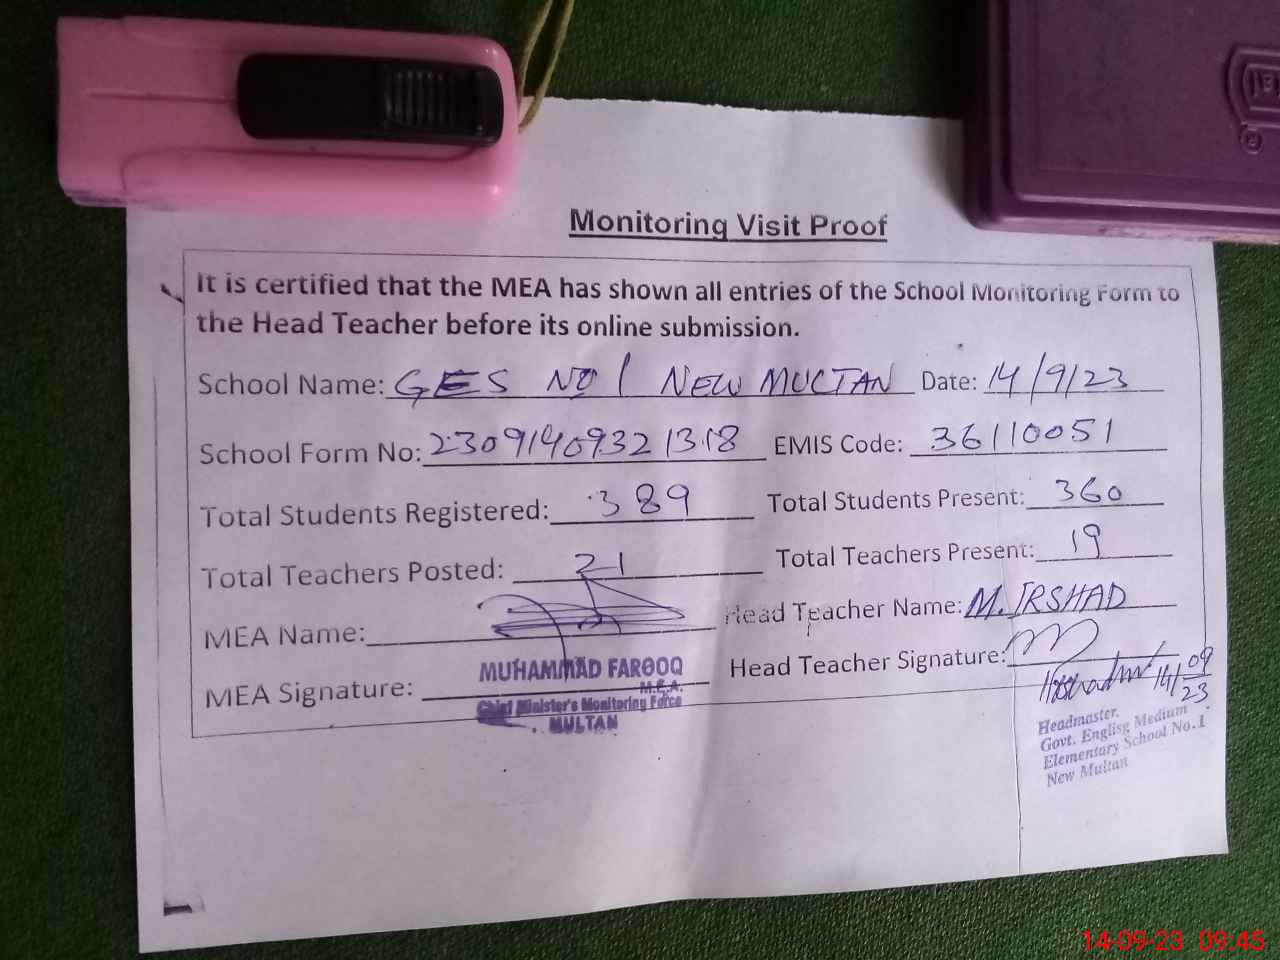 Monitoring Visit Proof
It is certified that the MEA has shown all entries of the School Monitoring Form to
the Head Teacher before its online submission.
School Name: GES NO 1 NEW MULTAN Date: 14/9/23
School Form No: 23091409321318 EMIS Code: 36110051
Total Students Registered: 389 Total Students Present: 360
Total Teachers Posted: 21 Total Teachers Present: 19
MEA Name: Head Teacher Name: M. IRSHAD
MEA Signature: Head Teacher Signature:
MUHAMMAD FAROOQ
M.E.A.
Chief Minister's Monitoring Force
MULTAN
14/09/23
Headmaster.
Govt. Englisg Medium
Elementary School No.1
New Multan
14-09-23 09:45